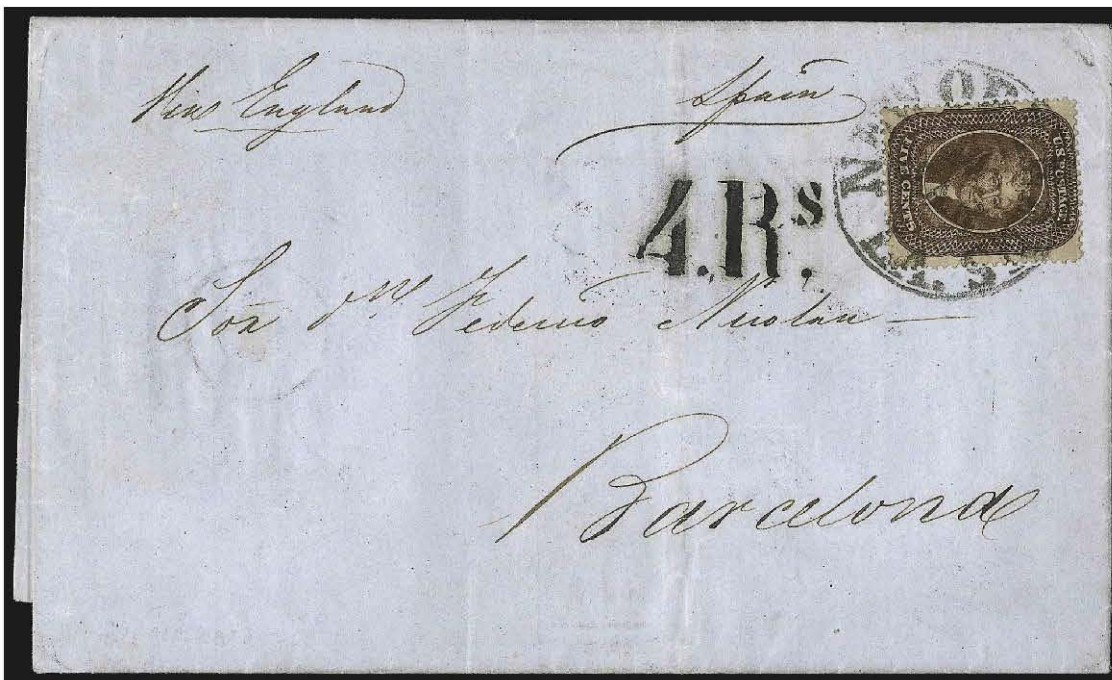 Via England
Spain
U.S. POSTAGE
FIVE CENTS
4.Rs.
Federico Nicolau
Barcelona